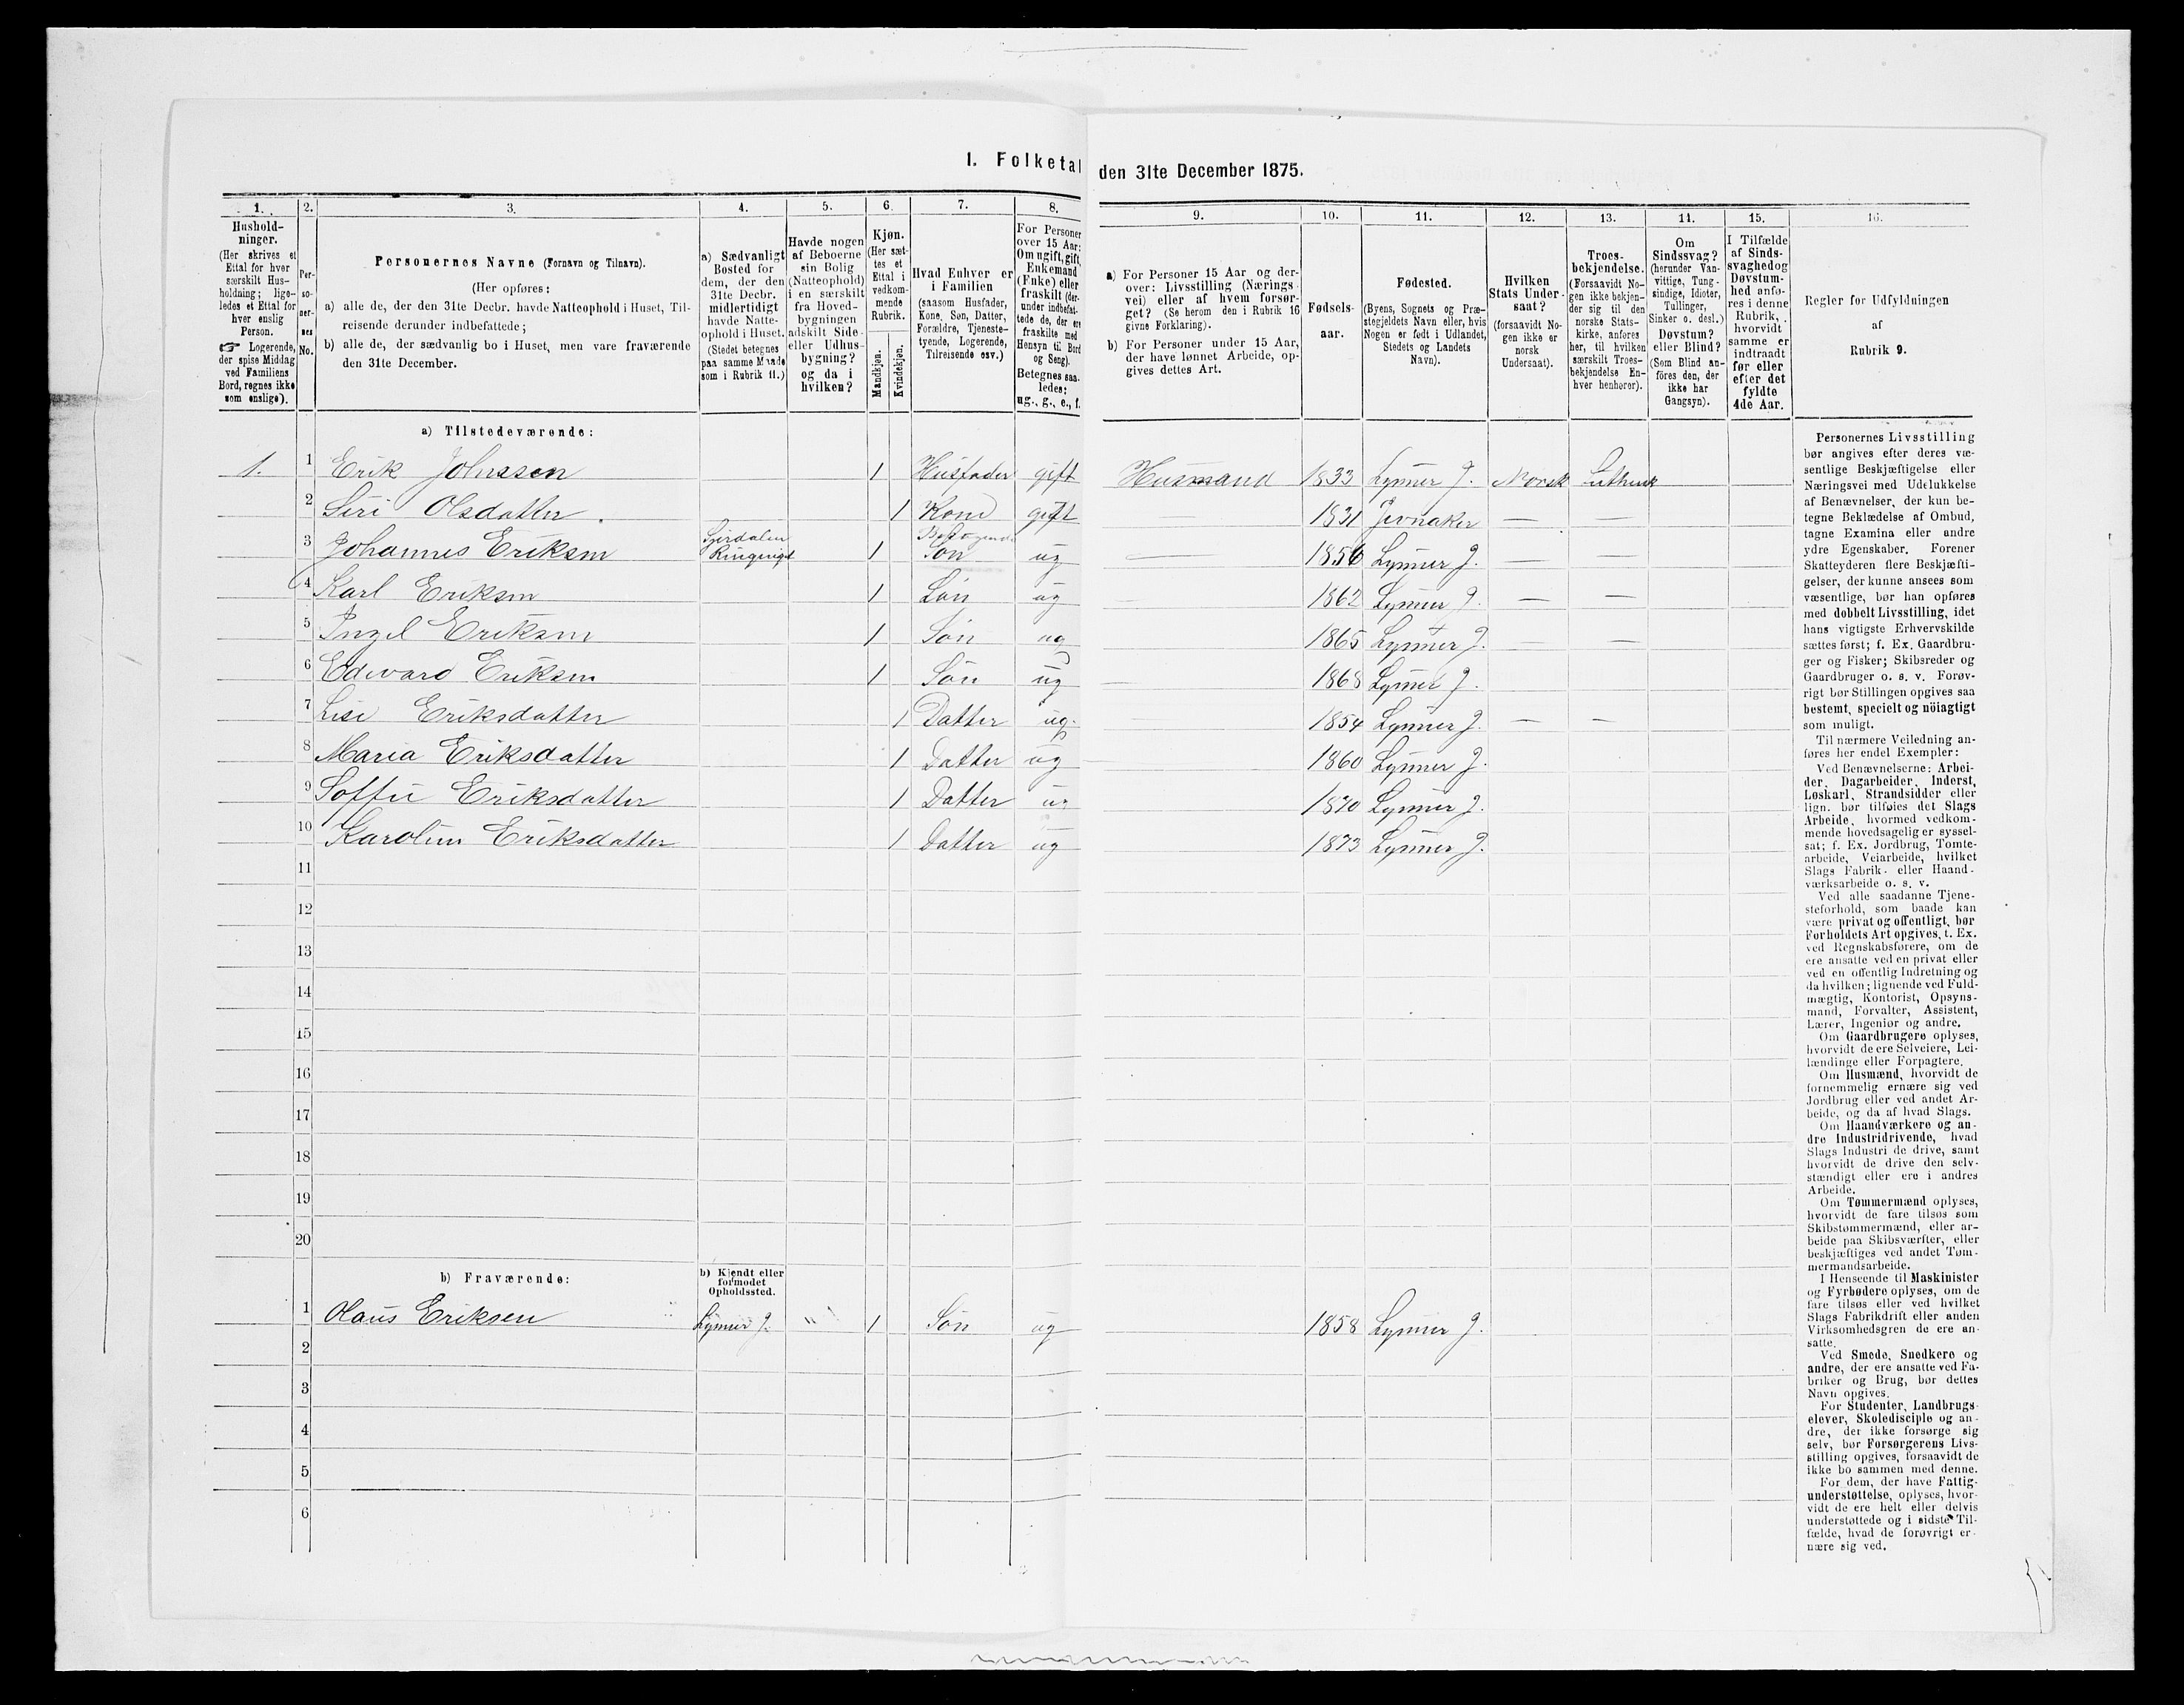 I. Folketal den 31te December 1875.
1.
2.
3.
4.
5.
6.
7.
8.
9.
10.
11.
12.
13.
14.
15.
16.
Hushold-
ninger.
(Her skrives et
Ettal for hver
særskilt Hus-
holdning; lige-
ledes et Ettal for
hver enslig
Person.
☞ Logerende,
der spise Middag
ved Familiens
Bord, regnes ikke
som enslige).
Per-
so-
ner-
nes
No.
Personernes Navne (Fornavn og Tilnavn).
(Her opføres:
a) alle de, der den 31te Decbr. havde Natteophold i Huset, Til-
reisende derunder indbefattede;
b) alle de, der sædvanlig bo i Huset, men vare fraværende
den 31te December.
a) Sædvanligt
Bosted for
dem, der den
31te Decbr.
midlertidigt
havde Natte-
ophold i Huset.
(Stedet betegnes
paa samme Maade
som i Rubrik 11.)
Havde nogen
af Beboerne
sin Bolig
(Natteophold)
i en særskilt
fra Hoved-
bygningen
adskilt Side-
eller Udhus-
bygning?
og da i
hvilken?
Kjøn.
(Her sæt-
tes et
Ettal i
vedkom-
mende
Rubrik.
Mandkjøn.
Kvindekjøn.
Hvad Enhver er
i Familien
(saasom Husfader,
Kone, Søn, Datter,
Forældre, Tjeneste-
tyende, Logerende,
Tilreisende osv.)
For Personer
over 15 Aar:
Om ugift, gift,
Enkemand
(Enke) eller
fraskilt (der-
under indbefat-
tede de, der ere
fraskilte med
Hensyn til Bord
og Seng).
Betegnes saa-
ledes:
ug., g., e., f.
a) For Personer 15 Aar og der-
over: Livsstilling (Nærings-
vei) eller af hvem forsør-
get? (Se herom den i Rubrik 16
givne Forklaring).
b) For Personer under 15 Aar,
der have lønnet Arbeide, op-
gives dettes Art.
Fødsels-
aar.
Fødested.
(Byens, Sognets og Præ-
stegjeldets Navn eller, hvis
Nogen er født i Udlandet,
Stedets og Landets
Navn).
Hvilken
Stats Under-
saat?
(forsaavidt No-
gen ikke er
norsk
Undersaat).
Troes-
bekjendelse.
(Forsaavidt No-
gen ikke bekjen-
der sig til den
norske Stats-
kirke, anføres
her, til hvilken
særskilt Troes-
bekjendelse En-
hver henhører).
Om
Sindssvag?
(herunder Van-
vittige, Tung-
sindige, Idioter,
Tullinger,
Sinker o. desl.)
Døvstum?
eller Blind?
(Som Blind an-
föres den, der
ikke har
Gangsyn).
I Tilfælde
af Sinds-
svaghed og
Døvstum-
hed anfø-
res i denne
Rubrik,
hvorvidt
samme er
indtraadt
før eller
efter det
fyldte
4de Aar.
Regler for Udfyldningen
af
Rubrik 9.
a) Tilstedeværende:
1. 1 Erik Johnssen 1 Husfader gift Husmand 1833 Lynner J. Norsk
2 Siri Olsdatter 1 Kone gift 1831 Jevnaker — —
3 Johannes Eriksen Ringeriget 1 Søn ug 1856 Lynner J. — —
4 Karl Eriksen 1 Søn ug 1862 Lynner J. — —
5 Ingel Eriksen 1 Søn ug 1865 Lynner J. — —
6 Edward Eriksen 1 Søn ug 1868 Lynner J.
7 Lise Eriksdatter 1 Datter ug. 1854 Lynner J. — —
8 Maria Eriksdatter 1 Datter ug 1860 Lynner J.
9 Soffie Eriksdatter 1 Datter ug 1870 Lynner J.
10 Karoline Eriksdatter 1 Datter ug 1873 Lynner J.
11
12
13
14
15
16
17
18
19
20
b) Fraværende:
b) Kjendt eller
formodet
Opholdssted.
1 Olaus Eriksen Lynner J. " 1 Søn ug 1858 Lynner J.
2
3
4
5
6
Personernes Livsstilling
bør angives efter deres væ-
sentlige Beskjæftigelse eller
Næringsvei med Udelukkelse
af Benævnelser, der kun be-
tegne Beklædelse af Ombud,
tagne Examina eller andre
ydre Egenskaber. Forener
Skatteyderen flere Beskjæfti-
gelser, der kunne ansees som
væsentlige, bør han opføres
med dobbelt Livsstilling, idet
hans vigtigste Erhvervskilde
sættes først; f. Ex. Gaardbru-
ger og Fisker; Skibsreder og
Gaardbruger o. s. v. Forøv-
rigt bør Stillingen opgives saa
bestemt, specielt og nöiagtigt
som muligt.
Til nærmere Veiledning an-
føres her endel Exempler:
Ved Benævnelserne: Arbei-
der, Dagarbeider, Inderst,
Løskarl, Strandsidder eller
lign. bør tilføies det Slags
Arbeide, hvormed vedkom-
mende hovedsagelig er syssel-
sat; f. Ex. Jordbrug, Tomte-
arbeide, Veiarbeide, hvilket
Slags Fabrik- eller Haand-
værksarbeide o. s. v.
Ved alle saadanne Tjene-
steforhold, som baade kan
være privat og offentligt, bør
Forholdets Art opgives, t. Ex.
ved Regnskabsførere, om de
ere ansatte ved en privat eller
ved en offentlig Indretning og
da hvilken; lignende ved Fuld-
mægtig, Kontorist, Opsyns-
mand, Forvalter, Assistent,
Lærer, Ingeniør og andre.
Om Gaardbrugere oplyses,
hvorvidt de ere Selveiere, Lei-
lændinge eller Forpagtere.
Om Husmænd, hvorvidt de
fornemmelig ernære sig ved
Jordbrug eller ved andet Ar-
beide, og da af hvad Slags.
Om Haandværkere og an-
dre Industridrivende, hvad
Slags Industri de drive, samt
hvorvidt de drive den selv-
stændigt eller ere i andres
Arbeide.
Om Tømmermænd oplyses,
hvorvidt de fare tilsøs som
Skibstømmermænd, eller ar-
beide paa Skibsværfter, eller
beskjæftiges ved andet Tøm-
mermandsarbeide.
I Henseende til Maskinister
og Fyrbødere oplyses, om de
fare tilsøs eller ved hvilket
Slags Fabrikdrift eller anden
Virksomhedsgren de ere an-
satte.
Ved Smede, Snedkere og
andre, der ere ansatte ved Fa-
briker og Brug, bør dettes
Navn opgives.
For Studenter, Landbrugs-
elever, Skoledisciple og an-
dre, der ikke forsørge sig
selv, bør Forsørgerens Livs-
stilling opgives, forsaavidt de
ikke bo sammen med denne.
For dem, der have Fattig-
understøttelse, oplyses, hvor-
vidt de ere helt eller delvis
understøttede og i sidste Til-
fælde, hvad de forøvrigt er-
nære sig ved.